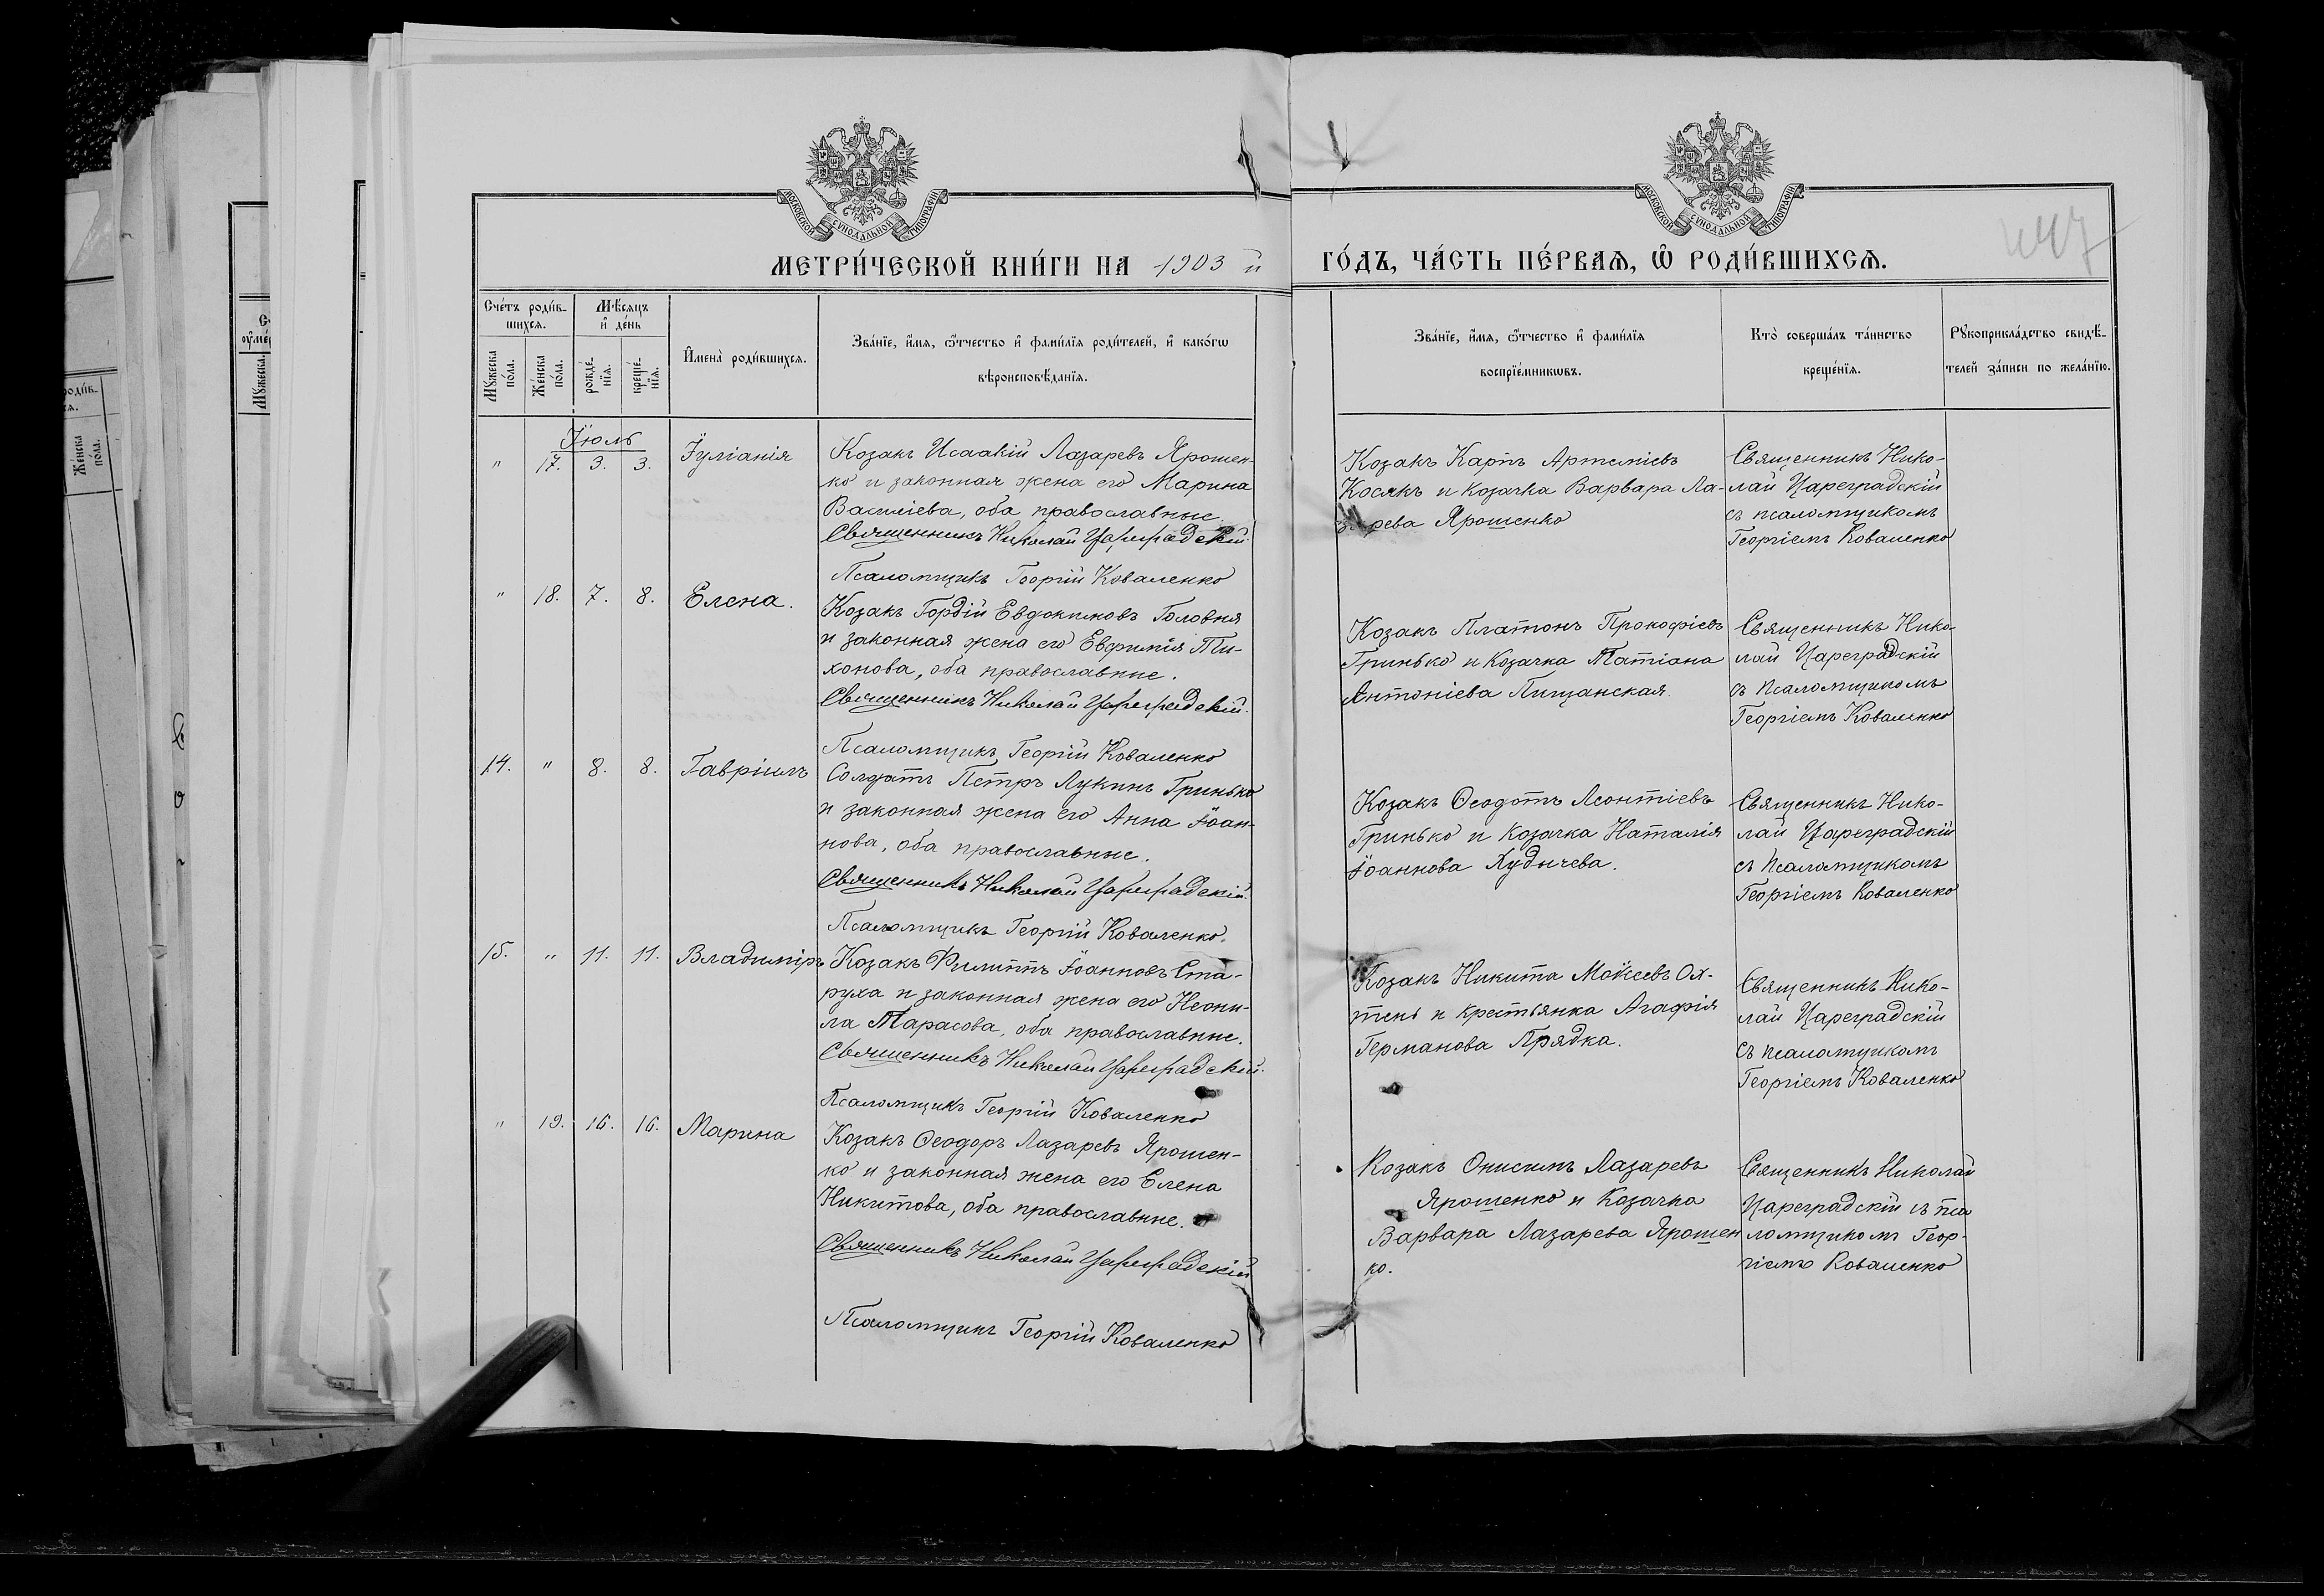 МОСКОВСКОЙ СУНОДАЛЬНОЙ ТИПОГРАФІИ
МОСКОВСКОЙ СУНОДАЛЬНОЙ ТИПОГРАФІИ
МЕТРИ́ЧЕСКОЙ КНИ́ГИ НА 1903 й
ГО́ДЪ, ЧА́СТЬ ПЕ́РВАѦ, Ѡ РОДИ́ВШИХСѦ.
Сче́тъ роди́в-
шихсѧ.
Мѣсѧцъ
и де́нь
Мꙋжеска по́ла.
Же́нска по́ла.
рожде́-нїѧ.
креще́-нїѧ.
Имена̀ роди́вшихсѧ.
Зва́нїе, и́мѧ, ѻ́тчество и фами́лїѧ роди́телей, и како́гѡ
вѣроисповѣ́данїѧ.
Зва́нїе, и́мѧ, ѻ́тчество и фами́лїѧ
воспрїе́мникѡвъ.
Кто̀ соверша́лъ та́инство
креще́нїѧ.
Рꙋкоприкла́дство свидѣ́-
телей за́писи по жела́нїю.
Іюль
" 17. 3. 3. Іуліанія
Козакъ Исаакій Лазаревъ Ярошен-
ко и законная жена его Марина
Василіева, оба православные.
Священникъ Николай Цареградскій.
Псаломщикъ Георгій Коваленко
Козакъ Карпъ Артеміевъ
Косякъ и козачка Варвара Ла-
зарева Ярошенко
Священникъ Нико-
лай Цареградскій
съ псаломщикомъ
Георгіемъ Коваленко
" 18. 7. 8. Елена.
Козакъ Гордій Евдокимовъ Головня
и законная жена его Евфимія Ти-
хонова, оба православные.
Священникъ Николай Цареградскій.
Псаломщикъ Георгій Коваленко
Козакъ Платонъ Прокофіевъ
Гринько и козачка Татіана
Антоніева Пищанская.
Священникъ Нико-
лай Цареградскій
съ псаломщикомъ
Георгіемъ Коваленко
14. " 8. 8. Гавріилъ
Солдатъ Петръ Лукинъ Гринько
и законная жена его Анна Іоан-
нова, оба православные.
Священникъ Николай Цареградскій.
Псаломщикъ Георгій Коваленко.
Козакъ Ѳеодотъ Леонтіевъ
Гринько и козачка Наталія
Іоаннова Кудычева.
Священникъ Нико-
лай Цареградскій
съ псаломщикомъ
Георгіемъ Коваленко
15. " 11. 11. Владиміръ
Козакъ Филиппъ Іоанновъ Ста-
руха и законная жена его Неони-
ла Тарасова, оба православные.
Священникъ Николай Цареградскій.
Псаломщикъ Георгій Коваленко
Козакъ Никита Моѵсеевъ Ох-
тень и крестьянка Агафія
Германова Прядка.
Священникъ Нико-
лай Цареградскій
съ псаломщикомъ
Георгіемъ Коваленко
" 19. 16. 16. Марина
Козакъ Ѳеодоръ Лазаревъ Ярошен-
ко и законная жена его Елена
Никитова, оба православные.
Священникъ Николай Цареградскій
Псаломщикъ Георгій Коваленко
Козакъ Онисимъ Лазаревъ
Ярошенко и козачка
Варвара Лазарева Ярошен
ко.
Священникъ Николай
Цареградскій съ пса
ломщикомъ Геор-
гіемъ Коваленко